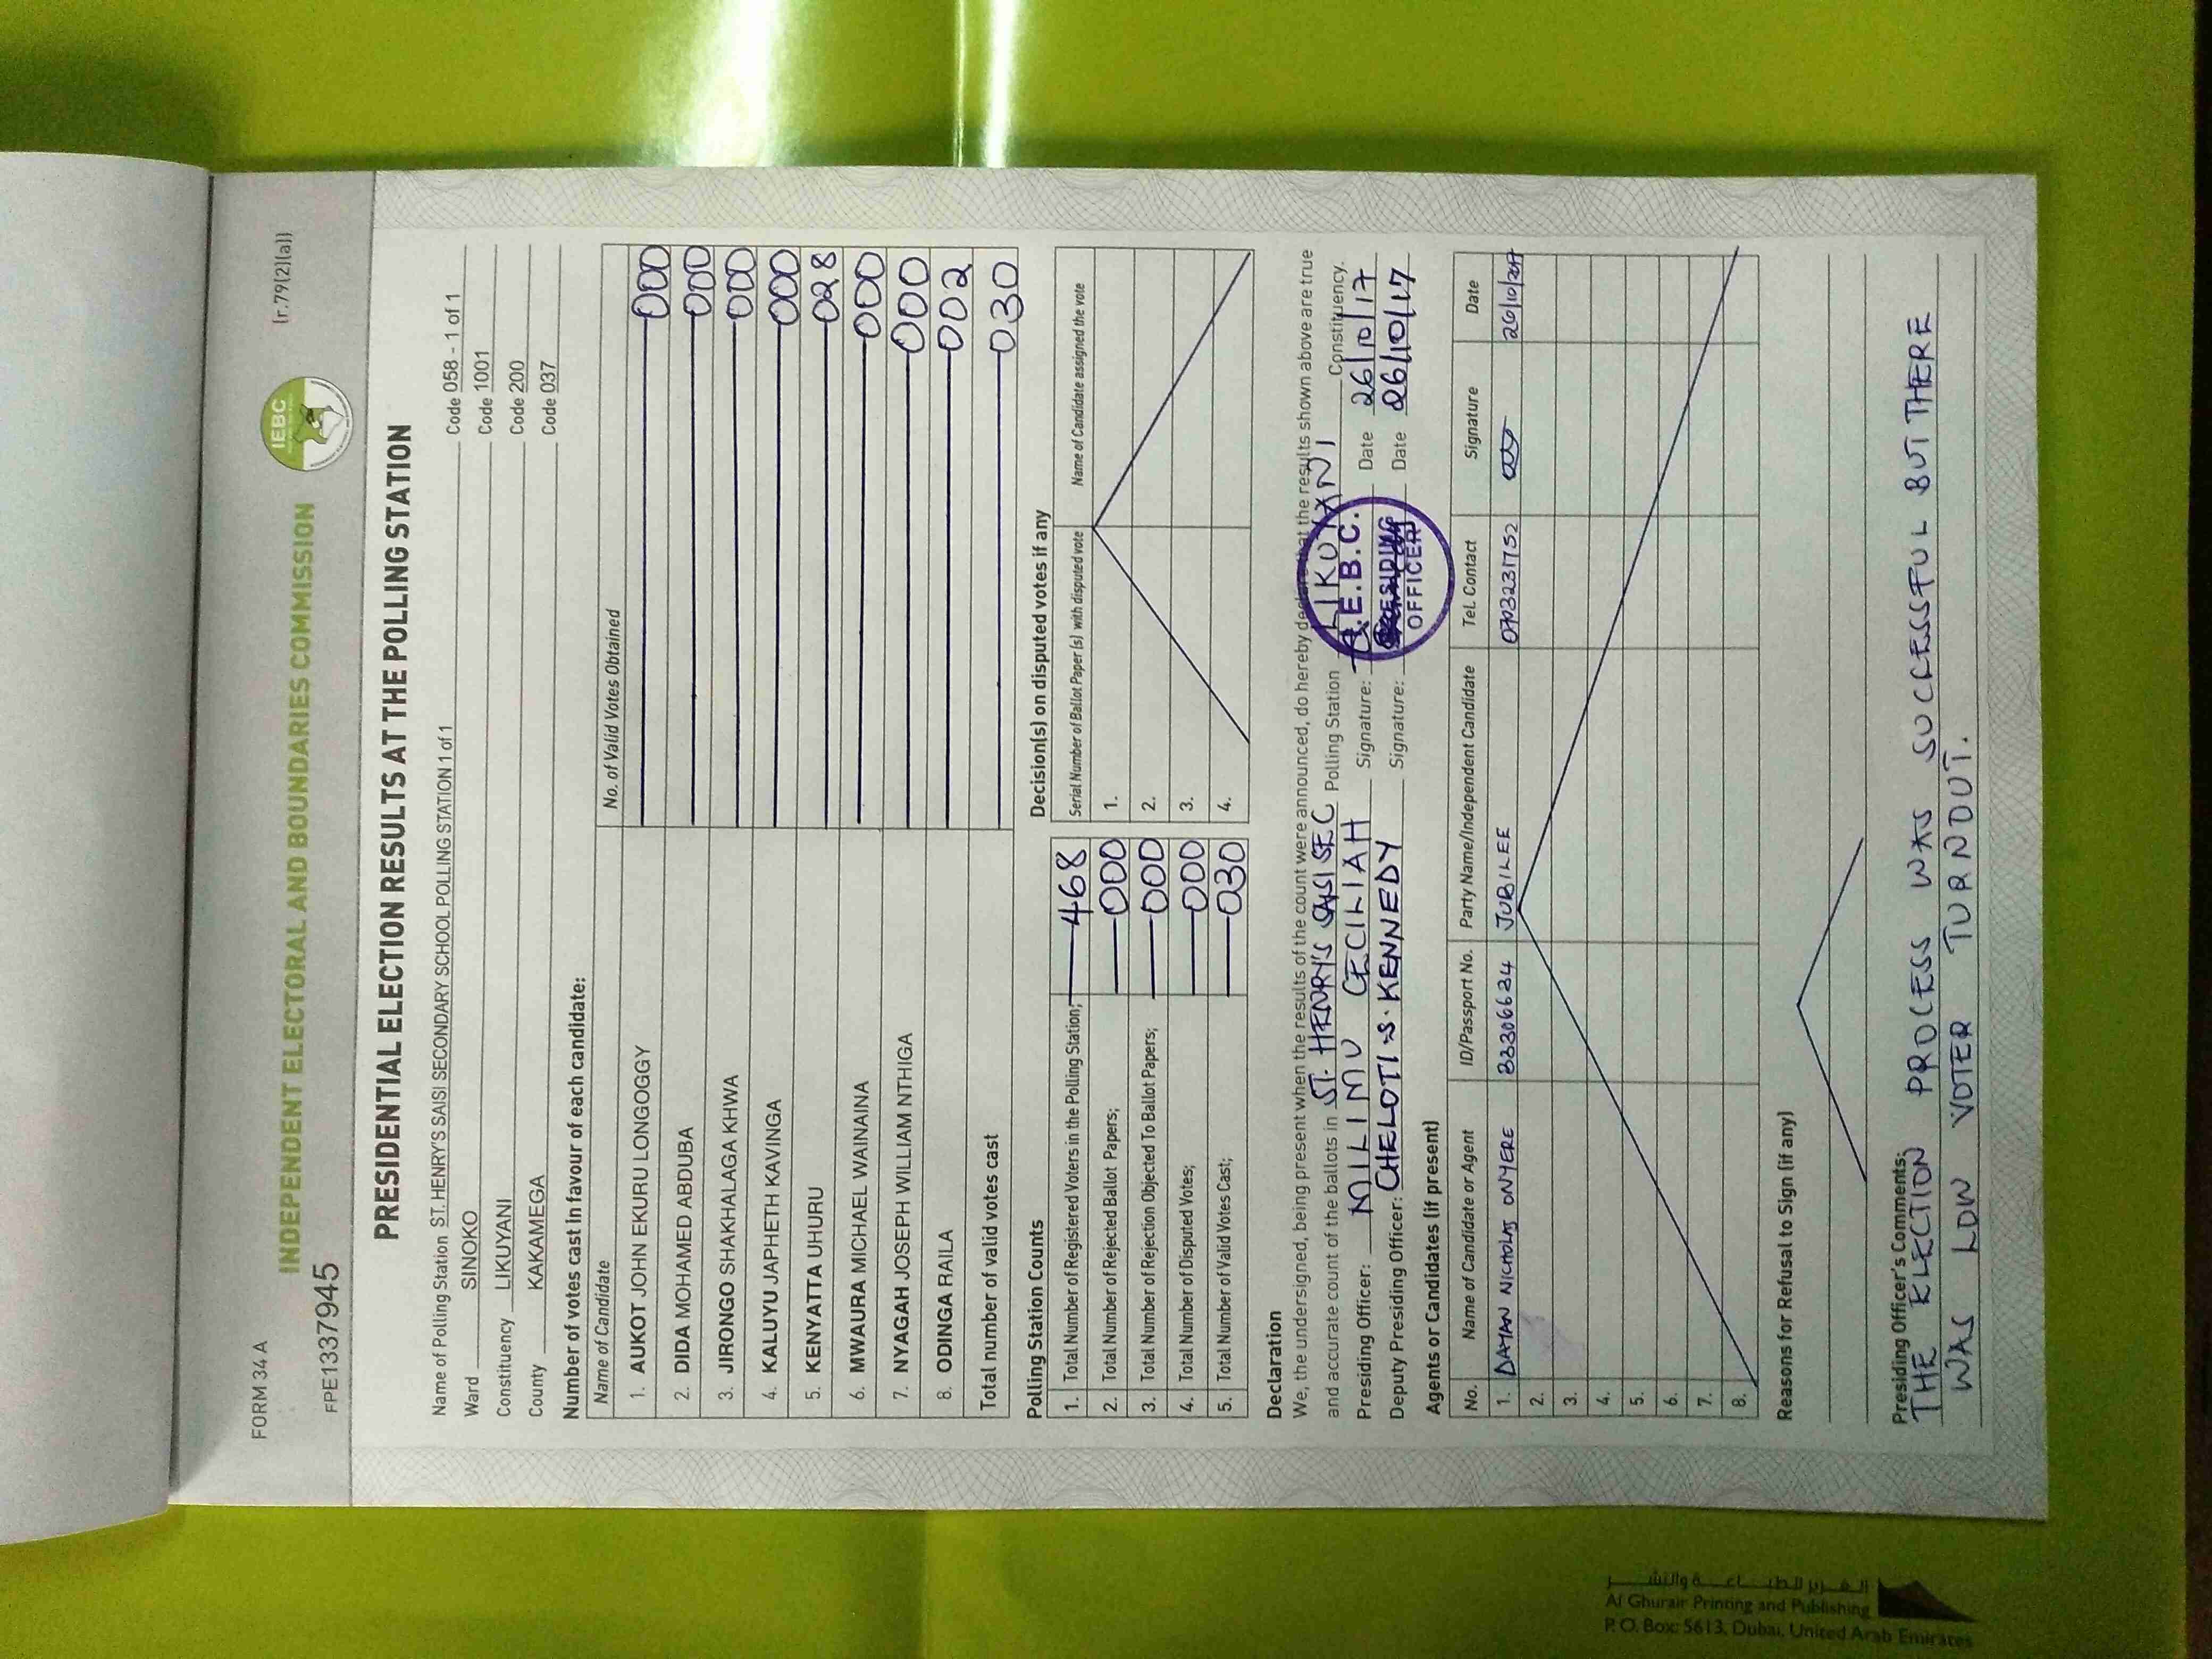 FORM 34 A
(r.79(2)(a))
IEBC
INDEPENDENT ELECTORAL AND BOUNDARIES COMMISSION
FPE1337945
PRESIDENTIAL ELECTION RESULTS AT THE POLLING STATION
Name of Polling Station ST. HENRY'S SAISI SECONDARY SCHOOL POLLING STATION 1 of 1 Code 058 - 1 of 1
Ward SINOKO Code 1001
Constituency LIKUYANI Code 200
County KAKAMEGA Code 037
Number of votes cast in favour of each candidate:
Name of Candidate No. of Valid Votes Obtained
1. AUKOT JOHN EKURU LONGOGGY 000
2. DIDA MOHAMED ABDUBA 000
3. JIRONGO SHAKHALAGA KHWA 000
4. KALUYU JAPHETH KAVINGA 000
5. KENYATTA UHURU 028
6. MWAURA MICHAEL WAINAINA 000
7. NYAGAH JOSEPH WILLIAM NTHIGA 000
8. ODINGA RAILA 002
Total number of valid votes cast 030
Polling Station Counts
1. Total Number of Registered Voters in the Polling Station; 468
2. Total Number of Rejected Ballot Papers; 000
3. Total Number of Rejection Objected To Ballot Papers; 000
4. Total Number of Disputed Votes; 000
5. Total Number of Valid Votes Cast; 030
Decision(s) on disputed votes if any
Serial Number of Ballot Paper (s) with disputed vote Name of Candidate assigned the vote
1.
2.
3.
4.
Declaration
We, the undersigned, being present when the results of the count were announced, do hereby declare that the results shown above are true
and accurate count of the ballots in ST. HENRY'S SAISI SEC Polling Station LIKUYANI Constituency.
Presiding Officer: MILIMU CECILIAH Signature: Date 26/10/17
Deputy Presiding Officer: CHELOTI S. KENNEDY Signature: Date 26/10/17
I.E.B.C.
PRESIDING
OFFICER
Agents or Candidates (if present)
No. Name of Candidate or Agent ID/Passport No. Party Name/Independent Candidate Tel. Contact Signature Date
1. DAYAN NICHOLAS ONYERE 33306624 JUBILEE 0703231752 26/10/2017
2.
3.
4.
5.
6.
7.
8.
Reasons for Refusal to Sign (if any)
Presiding Officer's Comments:
THE ELECTION PROCESS WAS SUCCESSFUL BUT THERE
WAS LOW VOTER TURNOUT.
الغرير للطباعة والنشر
Al Ghurair Printing and Publishing
P. O. Box: 5613, Dubai, United Arab Emirates